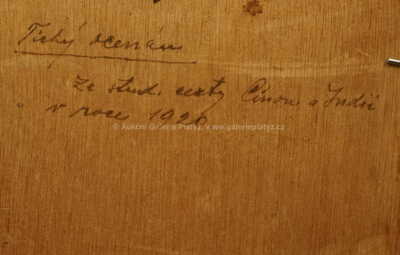 Tichý oceán
Ze stud. cesty Čínou a Indií
v roce 1920
© Aukční Galerie Platýz, www.galerieplatyz.cz